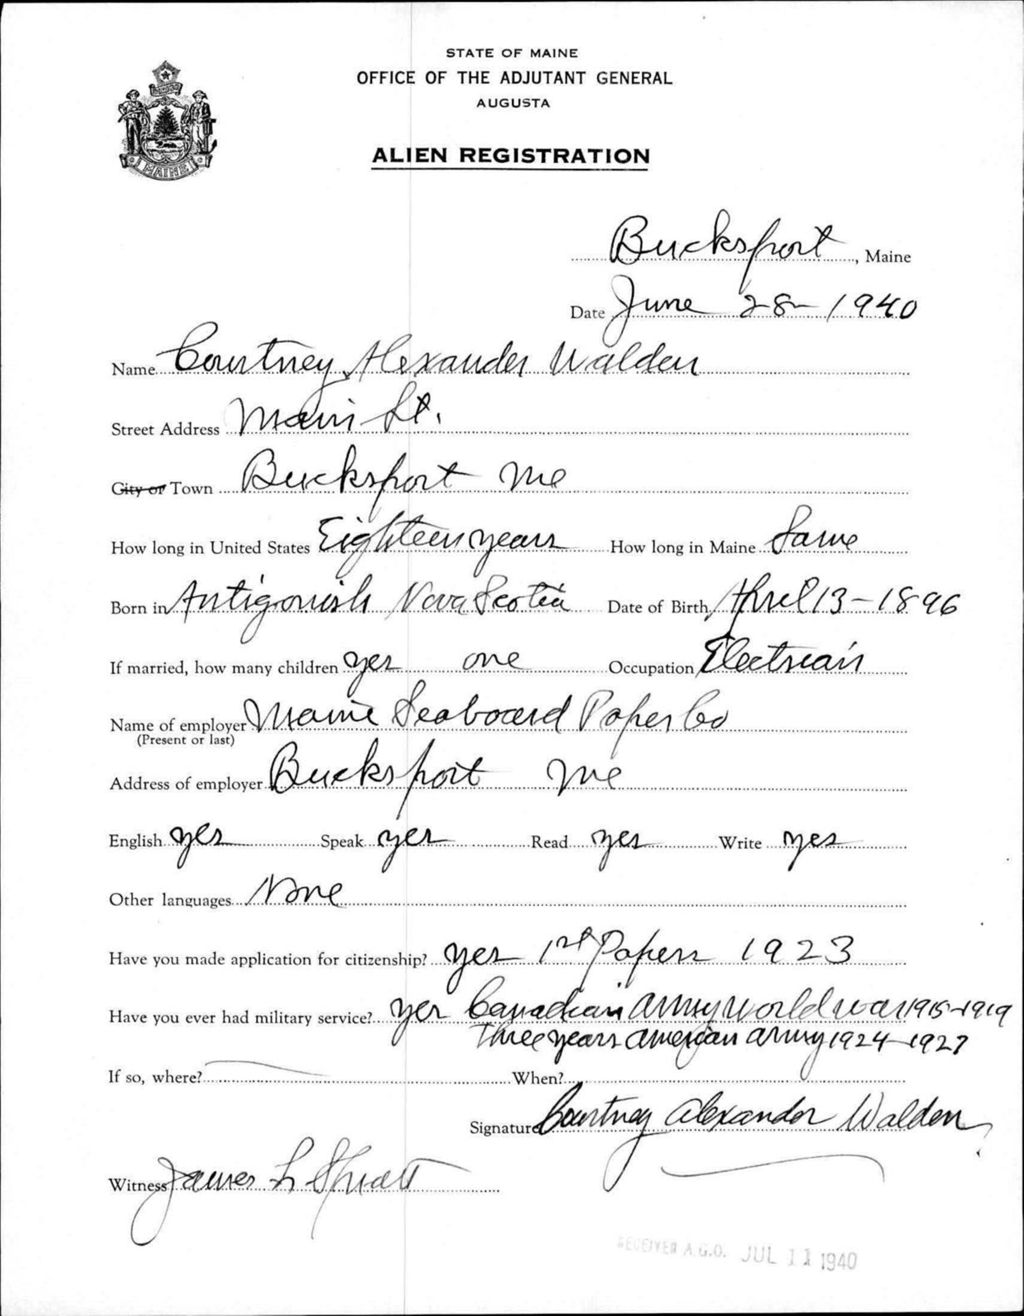 STATE OF MAINE
OFFICE OF THE ADJUTANT GENERAL
AUGUSTA
ALIEN REGISTRATION
MAINE
Bucksport, Maine
Date June 28 - 1940
Name Courtney Alexander Walden
Street Address Main St.
City or Town Bucksport Me
How long in United States Eighteen years How long in Maine Same
Born in Antigonish Nova Scotia Date of Birth April 13 - 1896
If married, how many children yes one Occupation Electrician
Name of employer Maine Seaboard Paper Co
(Present or last)
Address of employer Bucksport Me
English yes Speak yes Read yes Write yes
Other languages None
Have you made application for citizenship? yes 1st Papers 1923
Have you ever had military service? yes Canadian army world war 1915-1919
Three years american army 1924-1927
If so, where? When?
Signature Courtney Alexander Walden
Witness James L
RECEIVED A.G.O. JUL 11 1940